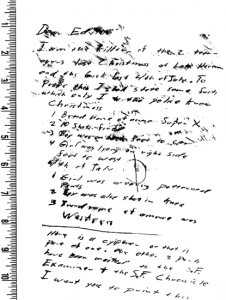 Dear Editor
I am the killer of the 2 teen
agers last Christmas at Lake Herman
and the Girl last 4th of July. To
Prove this I shall state some facts
which only I + the police know
Christmas
1 Brand name of ammo Super X
2 10 Shots fired
3 Boy was on back feet to car
4 Girl was lyeing on right side
feet to west
4th of July
1 Girl was wearing patterned
pants
2 Boy was also shot in knee
3 Brand name of ammo was
Western
Here is a cipher or that is
part of one. the other 2 parts
have been mailed to the S.F.
Examiner + the S.F. Chronicle
I want you to print this
1
2
3
4
5
6
7
8
9
10